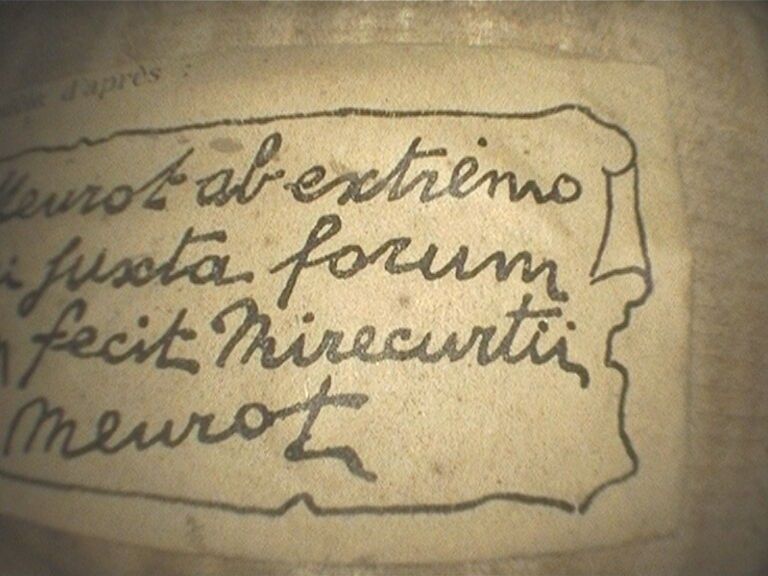 d'après :
Meurot ab extrêmo
i juxta forum
fecit Mirecurtii
Meurot